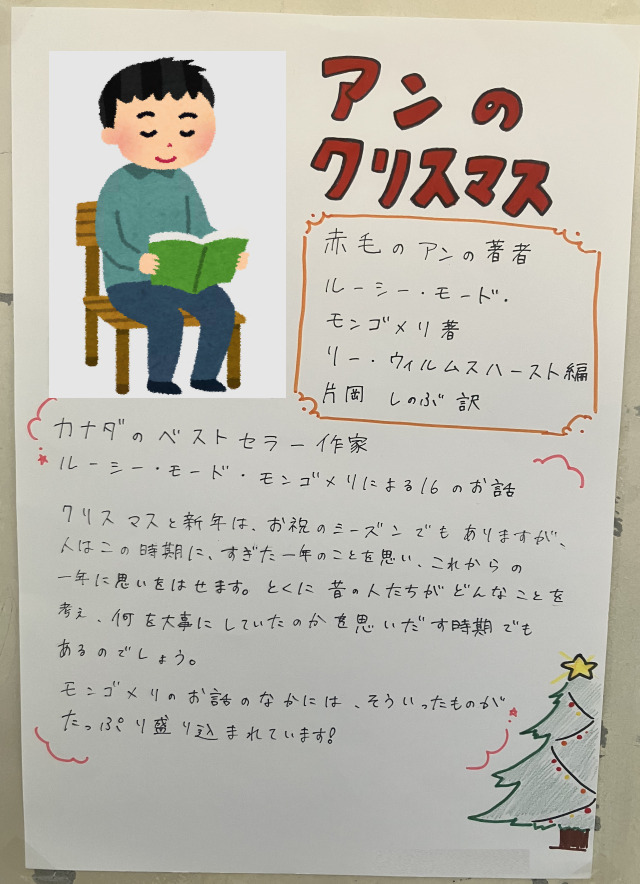 アンの
クリスマス
赤毛のアンの著者
ルーシー・モード・
モンゴメリ著
リー・ウィルムスハースト編
片岡 しのぶ 訳
カナダのベストセラー作家
ルーシー・モード・モンゴメリによる16のお話
クリスマスと新年は、お祝のシーズンでもありますが、
人はこの時期に、すぎた一年のことを思い、これからの
一年に思いをはせます。とくに昔の人たちがどんなことを
考え、何を大事にしていたのかを思いだす時期でも
あるのでしょう。
モンゴメリのお話のなかには、そういったものが
たっぷり盛り込まれています!